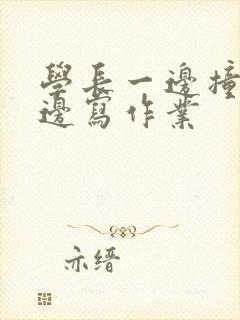 學長一邊撞
邊寫作業
亦縉